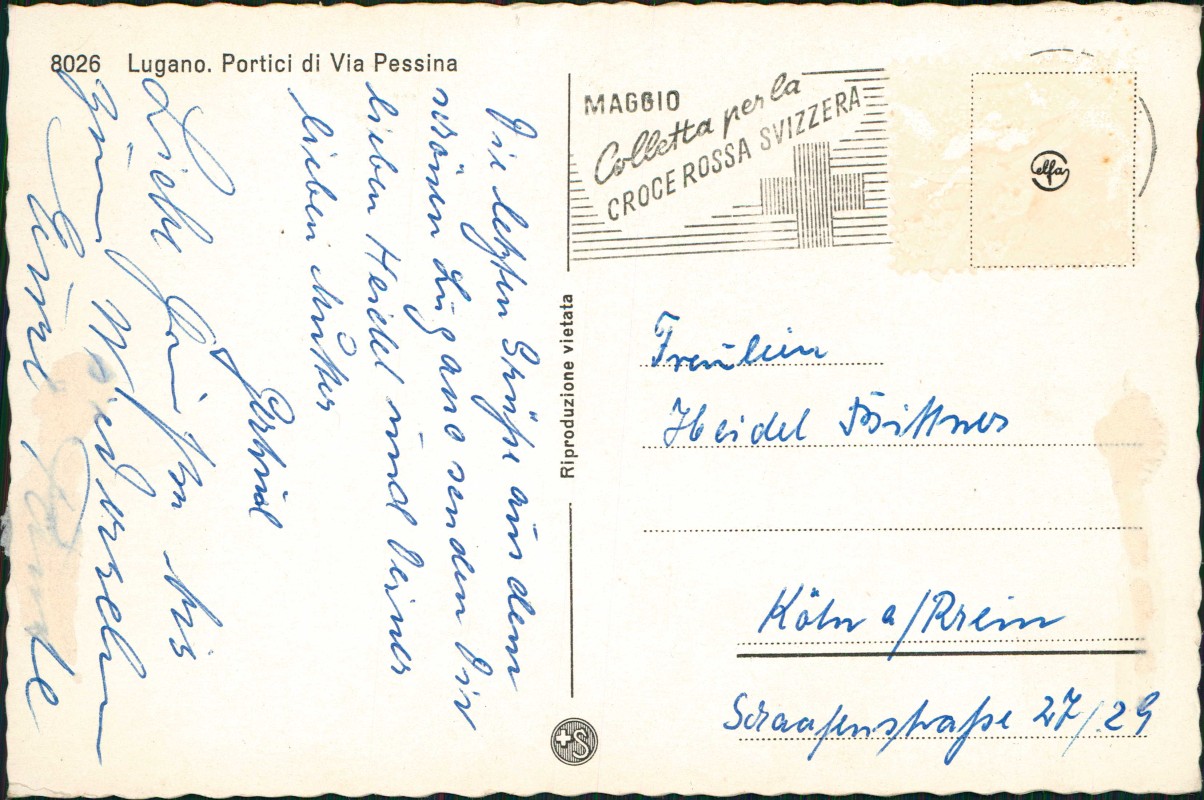 8026 Lugano. Portici di Via Pessina
MAGGIO
Colletta per la
CROCE ROSSA SVIZZERA
elfa
Die letzten Grüße aus dem
schönen Lugano senden Dir
lieben Heidel und Deiner
lieben Mutter
Liebe Grüße bis
zum Wiedersehn
Deine Tante
Riproduzione vietata
Fräulein
Heidel Bittner
Köln a/Rhein
Schaafenstraße 27/29